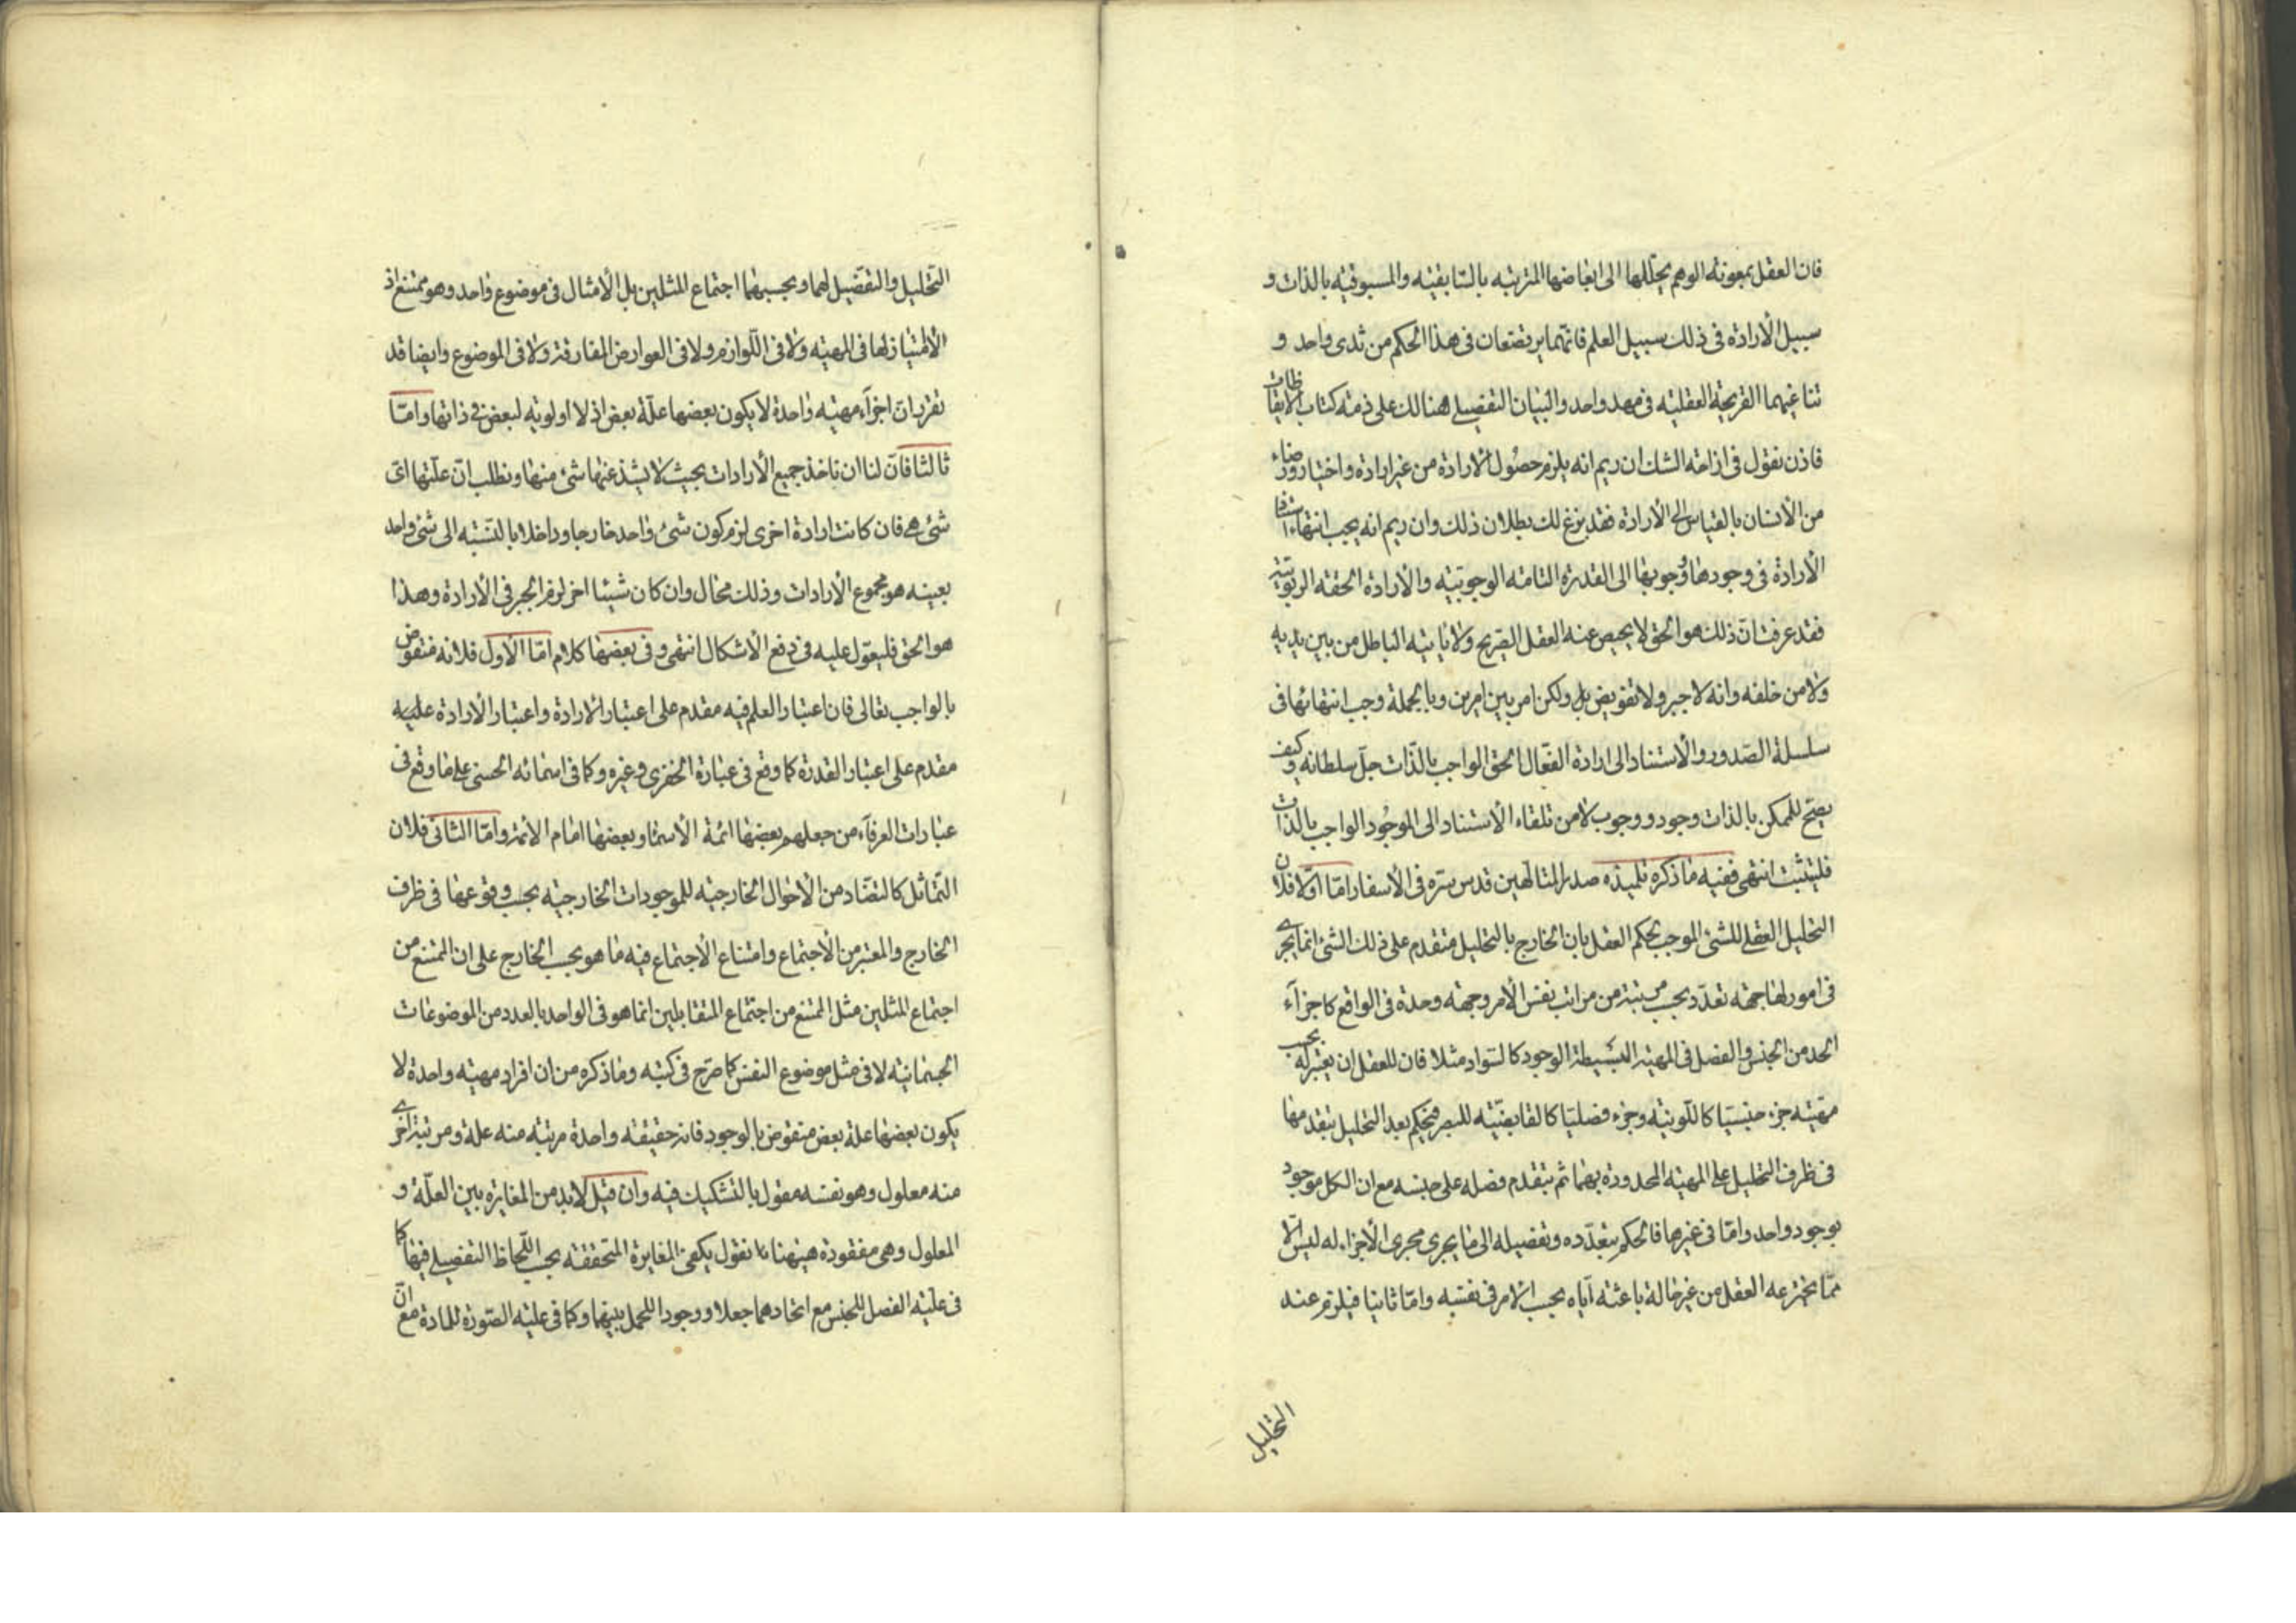 فان العقل بمعونة الوهم يحللها الى ابعاضها المترتبه بالسابقيه والمسبوقيه بالذات و
سبيل الأرادة فى ذلك سبيل العلم فانهما يرتضعان فى هذا الحكم من ثدى واحد و
تناغيهما القريحة العقليه فى مهد واحد والبيان التفصيلے هنالك على ذمة كتاب الايقاظات
فاذن نقول فى ازاحة الشك ان ريم انه يلزم حصول الارادة من غير ارادة واختيار ورضاء
من الأنسان بالقياس الى الأرادة فقد بزغ لك بطلان ذلك وان ريم انه يجب انتهاء استناد
الأرادة فى وجودها ووجوبها الى القدرة التامه الوجوبيه والأرادة الحقه الربوبيته
فقد عرفت ان ذلك هو الحق لا يحيص عنه العقل الصريح ولا ياتيه الباطل من بين يديه
ولا من خلفه وانه لا جبر ولا تفويض بل ولكن امر بين امرين وبالجملة وجب انتهائها فى
سلسلة الصدور والأستناد الى ارادة الفعّال الحق الواجب بالذات جل سلطانه وكيف
يصح للممكن بالذات وجود ووجوب لا من تلقاء الأستناد الى الموجود الواجب بالذات
فليتثبت انتهى ففيه ما ذكره تلميذه صدر المتالهين قدس سره فى الأسفار امّا اولا فلان
التحليل العقلے للشئ الموجب لحكم العقل بان الخارج بالتحليل متقدم على ذلك الشئ انما يجرے
فى امور لها جهة تعدّد بحسب مرتبة من مراتب نفس الأمر وجهة وحدة فى الواقع كاجزآء
الحد من الجنس والفصل فى المهيه البسيطة الوجود كالسواد مثلا فان للعقل ان يعتبر له بحسب
مهيته جزء جنسيا كاللونيه وجزء فصليا كالقابضيه للبصر فيحكم بعد التحليل بتقدمها
فى ظرف التحليل على المهيه المحدودة بهما ثم بتقدم فصله على جنسه مع ان الكل موجود
بوجود واحد وامّا فى غيرها فالحكم بتعدده وتفصيله الى ما يجرى مجرى الأجزاء له ليس الّا
ممّا يخترعه العقل من غير حالة باعثة اياه بحسب الامر فى نفسه وامّا ثانيا فيلزم عند
التحليل
التحليل والتفصيل لهما وبحسبهما اجتماع المثلين بل الأمثال فى موضوع واحد وهو ممتنع اذ
الأمتياز لها فى المهيه ولا فى اللوازم ولا فى العوارض المفارقة ولا فى الموضوع وايضا قد
تقرر ان اجزآء مهيه واحدة لا يكون بعضها علة بعض اذ لا اولويه لبعض فى ذاتها وامّا
ثالثا فانّ لنا ان ناخذ جميع الأرادات بحيث لا يشذ عنها شئ منها ونطلب انّ علتها اىّ
شئ هے فان كانت ارادة اخرى لزم كون شئ واحد خارجا وداخلا بالنسبه الى شئ واحد
بعينه هو مجموع الأرادات وذلك محال وان كان شيئا اخر لزم الجبر فى الأرادة وهذا
هو الحق فليعوّل عليه فى دفع الأشكال انتهى وفى بعضها كلام امّا الأول فلانه منقوض
بالواجب تعالى فان اعتبار العلم فيه مقدم على اعتبار الارادة واعتبار الارادة عليه
مقدم على اعتبار القدرة كما وقع فى عبارة الخفرى وغيره وكما فى اسمائه الحسنى على ما وقع فى
عبارات العرفآء من جعلهم بعضها ائمة الأسما وبعضها امام الأئمة وامّا الثانى فلان
التماثل كالتضاد من الأحوال الخارجيه للموجودات الخارجيه بحسب وقوعها فى ظرف
الخارج والمعتبر من الأجتماع وامتناع الأجتماع فيه ما هو بحسب الخارج على ان الممتنع من
اجتماع المثلين مثل الممتنع من اجتماع المتقابلين انما هو فى الواحد بالعدد من الموضوعات
الجسمانيه لا فى مثل موضوع النفس كما صرّح فى كتبه وما ذكره من ان افراد مهيه واحدة لا
يكون بعضها علة بعض منقوض بالوجود فانه حقيقه واحدة مرتبه منه علة ومرتبة اخرے
منه معلول وهو نفسه مقول بالتشكيك فيه وان قيل لا بد من المغايرة بين العلّة و
المعلول وهى مفقودة هيهنا نقول يكفى المغايرة المتحققه بحسب اللحاظ التفصيلے فيها كما
فى علّيه الفصل للجنس مع اتحادهما جعلا ووجودا للحمل بينهما وكما فى عليه الصورة للمادة مع انّ